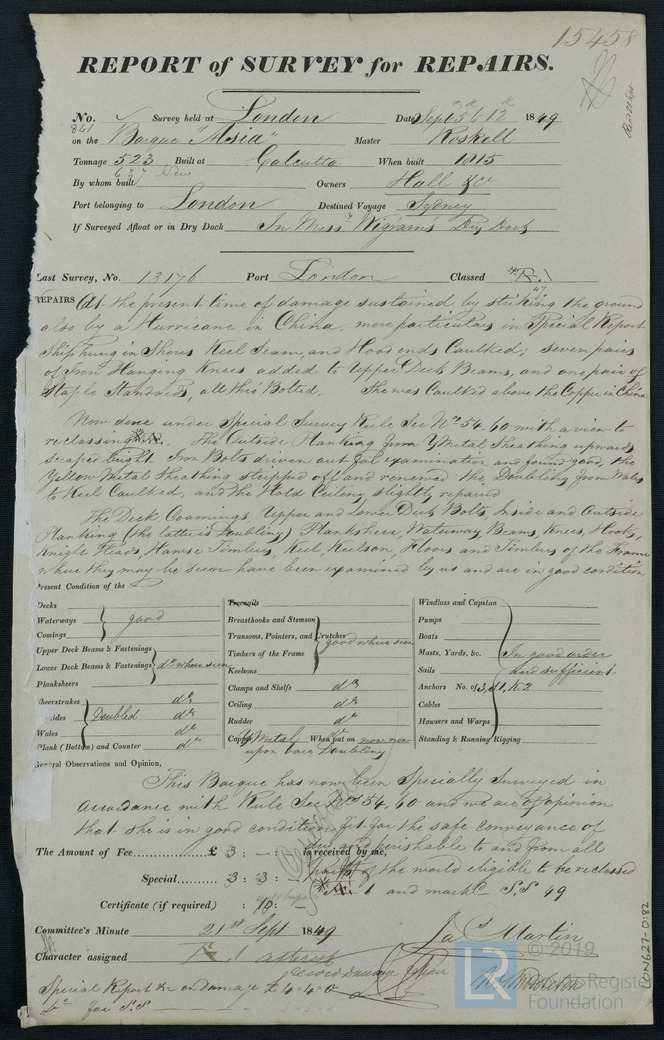 15458
REPORT of SURVEY for REPAIRS.
No. 861 Survey held at London Date Sept 5th & 12th 1849
on the Barque "Asia" Master Roskell
Tonnage 523 Built at Calcutta When built 1815
637 New
By whom built Owners Hall & Co
Port belonging to London Destined Voyage Sydney
If Surveyed Afloat or in Dry Dock In Messrs Wigram's Dry Dock
Last Survey, No. 13176 Port London Classed
REPAIRS At the present time of damage sustained by striking the ground
also by a Hurricane in China, more particulars in Special Report
Ship hung in Shores Keel Seam, and Hood ends Caulked; seven pairs
of Iron Hanging Knees added to Upper Deck Beams, and one pair of
Staple Standards, all thro' Bolted. She was Caulked above the Copper in China
Now done under Special Survey Rule Sec Nos. 54. 60 with a view to
reclassing. The Outside Planking from Y Metal Sheathing upwards
scraped bright Iron Bolts driven out for examination and found good, the
Yellow Metal Sheathing stripped off and renewed the Doubling from Wales
to Keel Caulked, and the Hold Ceiling slightly repaired
The Deck Coamings, Upper and Lower Deck Bolts, Inside and Outside
Planking (the latter is Doubling) Plankshear, Waterway, Beams, Knees, Hooks,
Knight Heads, Hawse Timbers, Keel, Keelson, Floors and Timbers of the Frame
where they may be seen have been examined by us and are in good condition
Present Condition of the
Decks
Waterways good
Comings
Upper Deck Beams & Fastenings
Lower Deck Beams & Fastenings do where seen
Planksheers
Sheerstrakes do
sides Doubled do
Wales do
Plank (Bottom) and Counter do
Treenails
Breasthooks and Stemson
Transoms, Pointers, and Crutches good where seen
Timbers of the Frame
Keelsons
Clamps and Shelfs do
Ceiling do
Rudder do
Copper Y Metal When put on now new
upon bare Doubling
Windlass and Capstan
Pumps
Boats
Masts, Yards, &c. In good order
Sails and sufficient
Anchors No. of 3, S1, K2
Cables
Hawsers and Warps
Standing & Running Rigging
General Observations and Opinion,
This Barque has now been Specially Surveyed in
accordance with Rule Sec Nos 54. 60 and we are of opinion
that she is in good condition fit for the safe conveyance of
dry and perishable to and from all
The Amount of Fee £ 3 : — : is received by me,
parts of the world eligible to be reclassed
Special 3 : 3 : —
1 and mark S.S 49
Certificate (if required) : 10 : —
Committee's Minute 21st Sept 1849
Jas Martin
Character assigned
Special Report &c on damage £ 4-4-0
for S.S
LR © 2019
Lloyd's Register
Foundation
LON627-0182